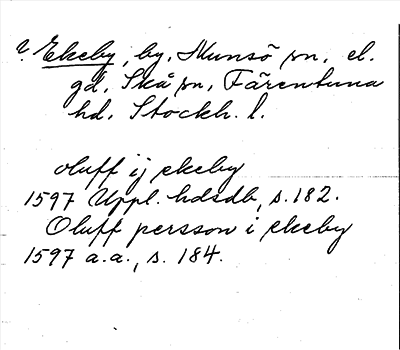 ? Ekeby, by, Munsö sn, el.
gd, Skå sn, Färentuna
hd, Stockh. l.
oluff ij ekeby
1597 Uppl. hdsdb, s. 182.
Oluff persson i ekeby
1597 a.a., s. 184.